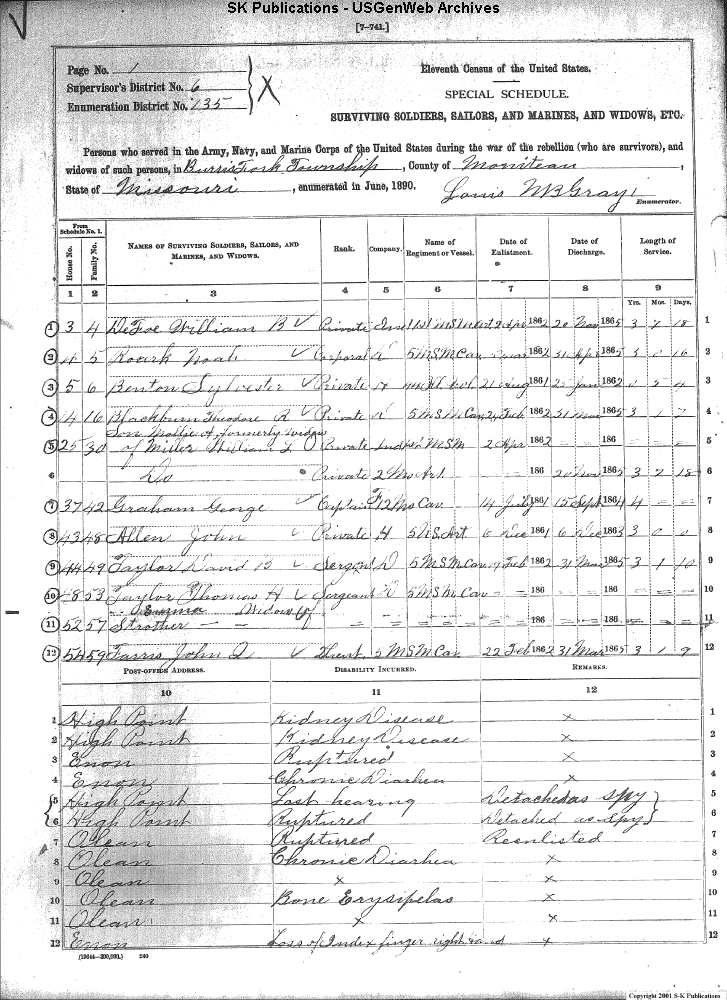 SK Publications - USGenWeb Archives
[7-741.]
Page No. 1
Supervisor's District No. 6
Enumeration District No. 135
X
Eleventh Census of the United States.
SPECIAL SCHEDULE.
SURVIVING SOLDIERS, SAILORS, AND MARINES, AND WIDOWS, ETC.
Persons who served in the Army, Navy, and Marine Corps of the United States during the war of the rebellion (who are survivors), and
widows of such persons, in Burris Fork Township, County of Moniteau,
State of Missouri, enumerated in June, 1890. Louis McGray
Enumerator.
From Schedule No. 1.
House No. Family No. NAMES OF SURVIVING SOLDIERS, SAILORS, AND MARINES, AND WIDOWS. Rank. Company. Name of Regiment or Vessel. Date of Enlistment. Date of Discharge. Length of Service.
1 2 3 4 5 6 7 8 9
Yrs. Mos. Days.
1 3 4 DeFoe William B Private 1862 20 Nov 1865 3 7 18 1
2 4 5 Roark Noah Corporal 5 M S M Cav 1862 31 Apr 1865 3 0 16 2
3 5 6 Benton Sylvester Private H 21 Aug 1861 25 Jan 1862 0 5 4 3
4 14 16 Blackburn Theodore R Private 5 M S M Cav 24 Feb 1862 31 Mar 1865 3 1 7 4
Mollie A formerly widow
5 25 30 of Miller William F Private M S M 2 Apr 1862 186 = = = 5
6 Do Private 2 Mo Art. – – 186 20 Nov 1865 3 7 18 6
7 37 42 Graham George Captain F 12 Mo Cav. 14 July 1861 15 Sept 4 = = 7
8 43 48 Allen John Private H 5 U.S. Art 6 Dec 1861 6 Dec 1863 3 0 0 8
9 44 49 Taylor David B Sergent D 5 M S M Cav 1862 31 Mar 1865 3 1 10 9
10 48 53 Taylor Thomas H Sergeant D 5 M S M Cav – – 186 – – 186 = = = 10
Widow of
11 52 57 Strother – – = = = = 186 = = 186 = = = 11
12 54 59 Farris John Q Lieut 5 M S M Cav. 22 Feb 1862 31 Mar 1865 3 1 9 12
POST-OFFICE ADDRESS. DISABILITY INCURRED. REMARKS.
10 11 12
1 High Point Kidney Disease x 1
2 High Point Kidney Disease x 2
3 Enon Ruptured x 3
4 Enon Chronic Diarhea x 4
5 High Point Lost hearing Detached as Spy 5
6 High Point Ruptured Detached as Spy 6
7 Olean Ruptured Reenlisted 7
8 Olean Chronic Diarhea x 8
9 Olean x x 9
10 Olean Bone Erysipelas x 10
11 Olean x x 11
12 Enon Loss of Index finger right hand x 12
(19644—200,000.) 240
Copyright 2001 S-K Publications